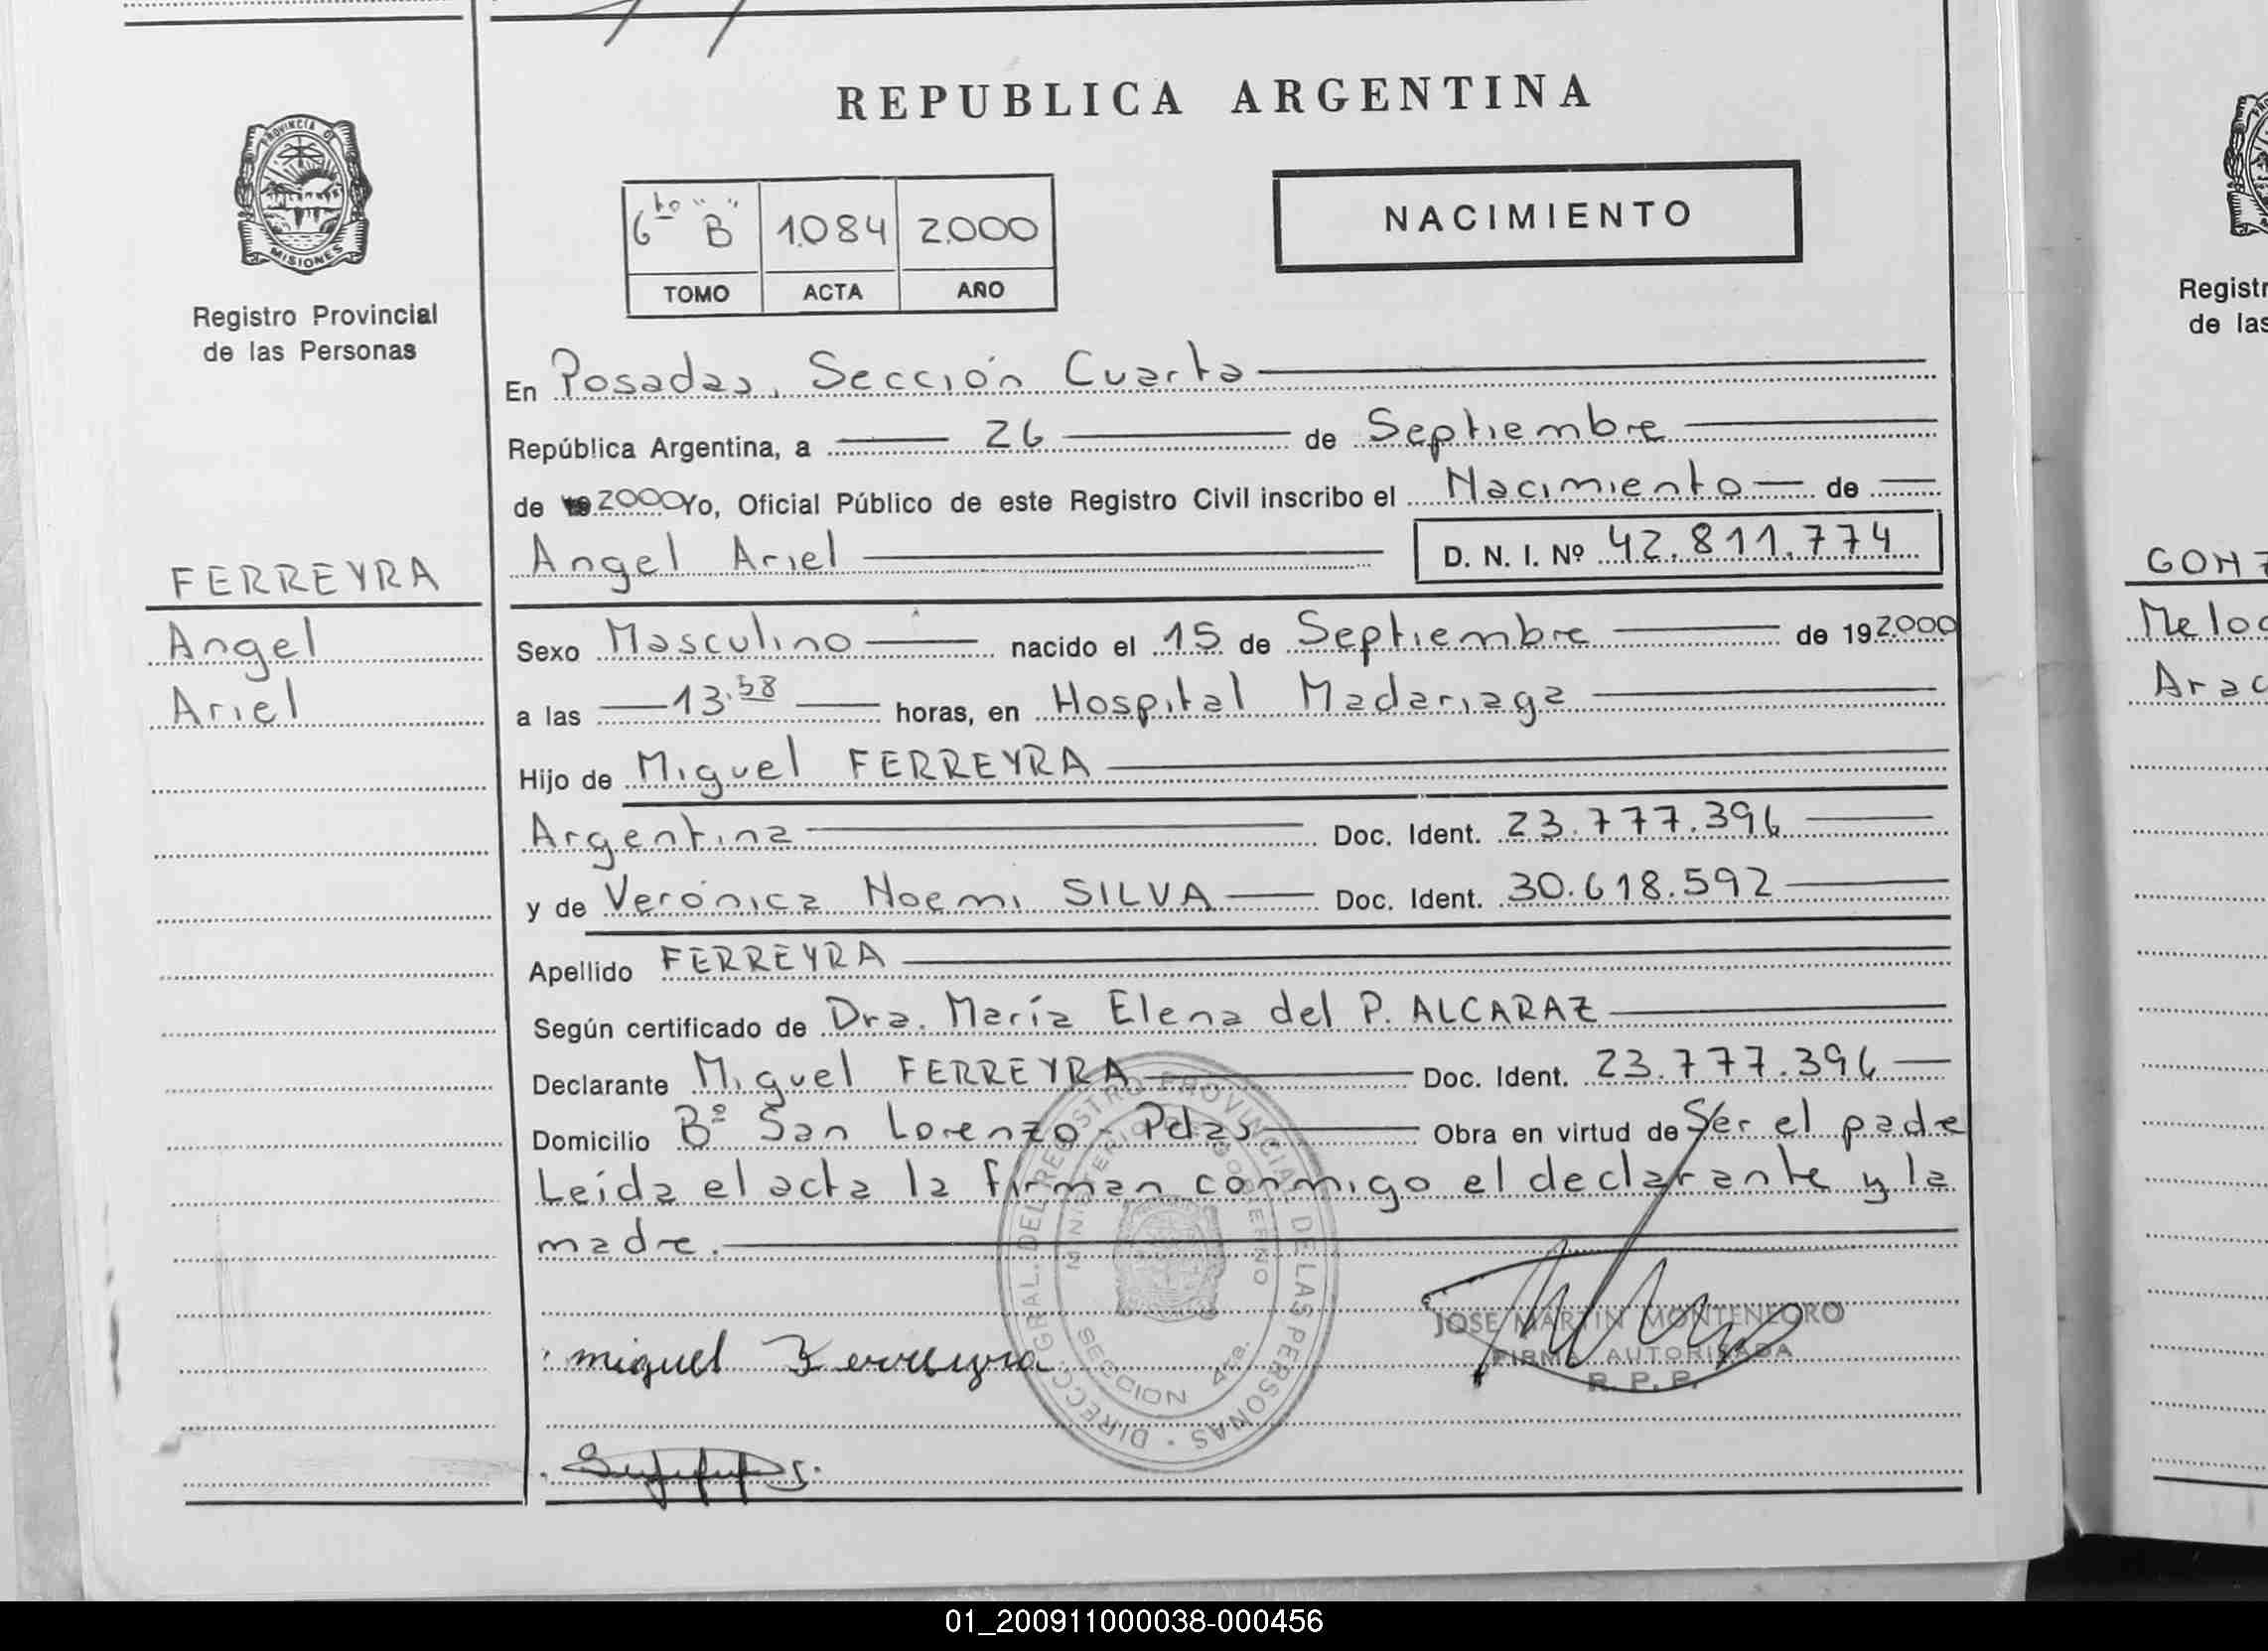 REPUBLICA ARGENTINA
PROVINCIA DE
MISIONES
Registro Provincial
de las Personas
6to "B" 1.084 2.000
TOMO ACTA AÑO
NACIMIENTO
En Posadas, Sección Cuarta
República Argentina, a 26 de Septiembre
de 2000 Yo, Oficial Público de este Registro Civil inscribo el Nacimiento de
Angel Ariel D. N. I. Nº 42.811.774
FERREYRA
Angel
Ariel
Sexo Masculino nacido el 15 de Septiembre de 192.000
a las 13.58 horas, en Hospital Madariaga
Hijo de Miguel FERREYRA
Argentina Doc. Ident. 23.777.396
y de Verónica Noemi SILVA Doc. Ident. 30.618.592
Apellido FERREYRA
Según certificado de Dra. María Elena del P. ALCARAZ
Declarante Miguel FERREYRA Doc. Ident. 23.777.396
Domicilio Bº San Lorenzo - Pdas Obra en virtud de Ser el padre
Leída el acta la firman conmigo el declarante y la
madre.
DIRECC. GRAL. DEL REGISTRO PROVINCIAL DE LAS PERSONAS
MINISTERIO DE GOBIERNO
SECCION 4ta.
JOSE MARTIN MONTENEGRO
FIRMA AUTORISADA
R. P. P.
miguel Ferreyra
Registr
de las
GONZ
Meloc
Arac
01_200911000038-000456